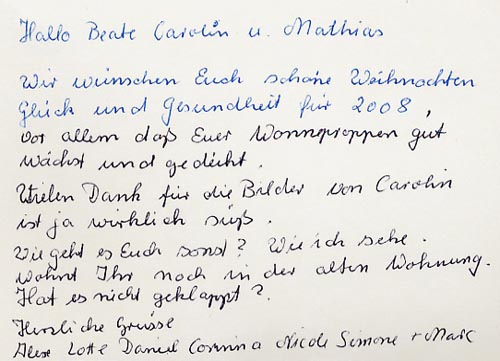 Hallo Beate Carolin u. Mathias
Wir wünschen Euch schöne Weihnachten
Glück und Gesundheit für 2008,
vor allem daß Euer Wonneproppen gut
wächst und gedeiht.
Vielen Dank für die Bilder von Carolin
ist ja wirklich süß.
Wie geht es Euch sonst? Wie ich sehe.
wohnt Ihr noch in der alten Wohnung.
Hat es nicht geklappt?
Herzliche Grüsse
Lotte Daniel Corinna Nicole Simone + Marc